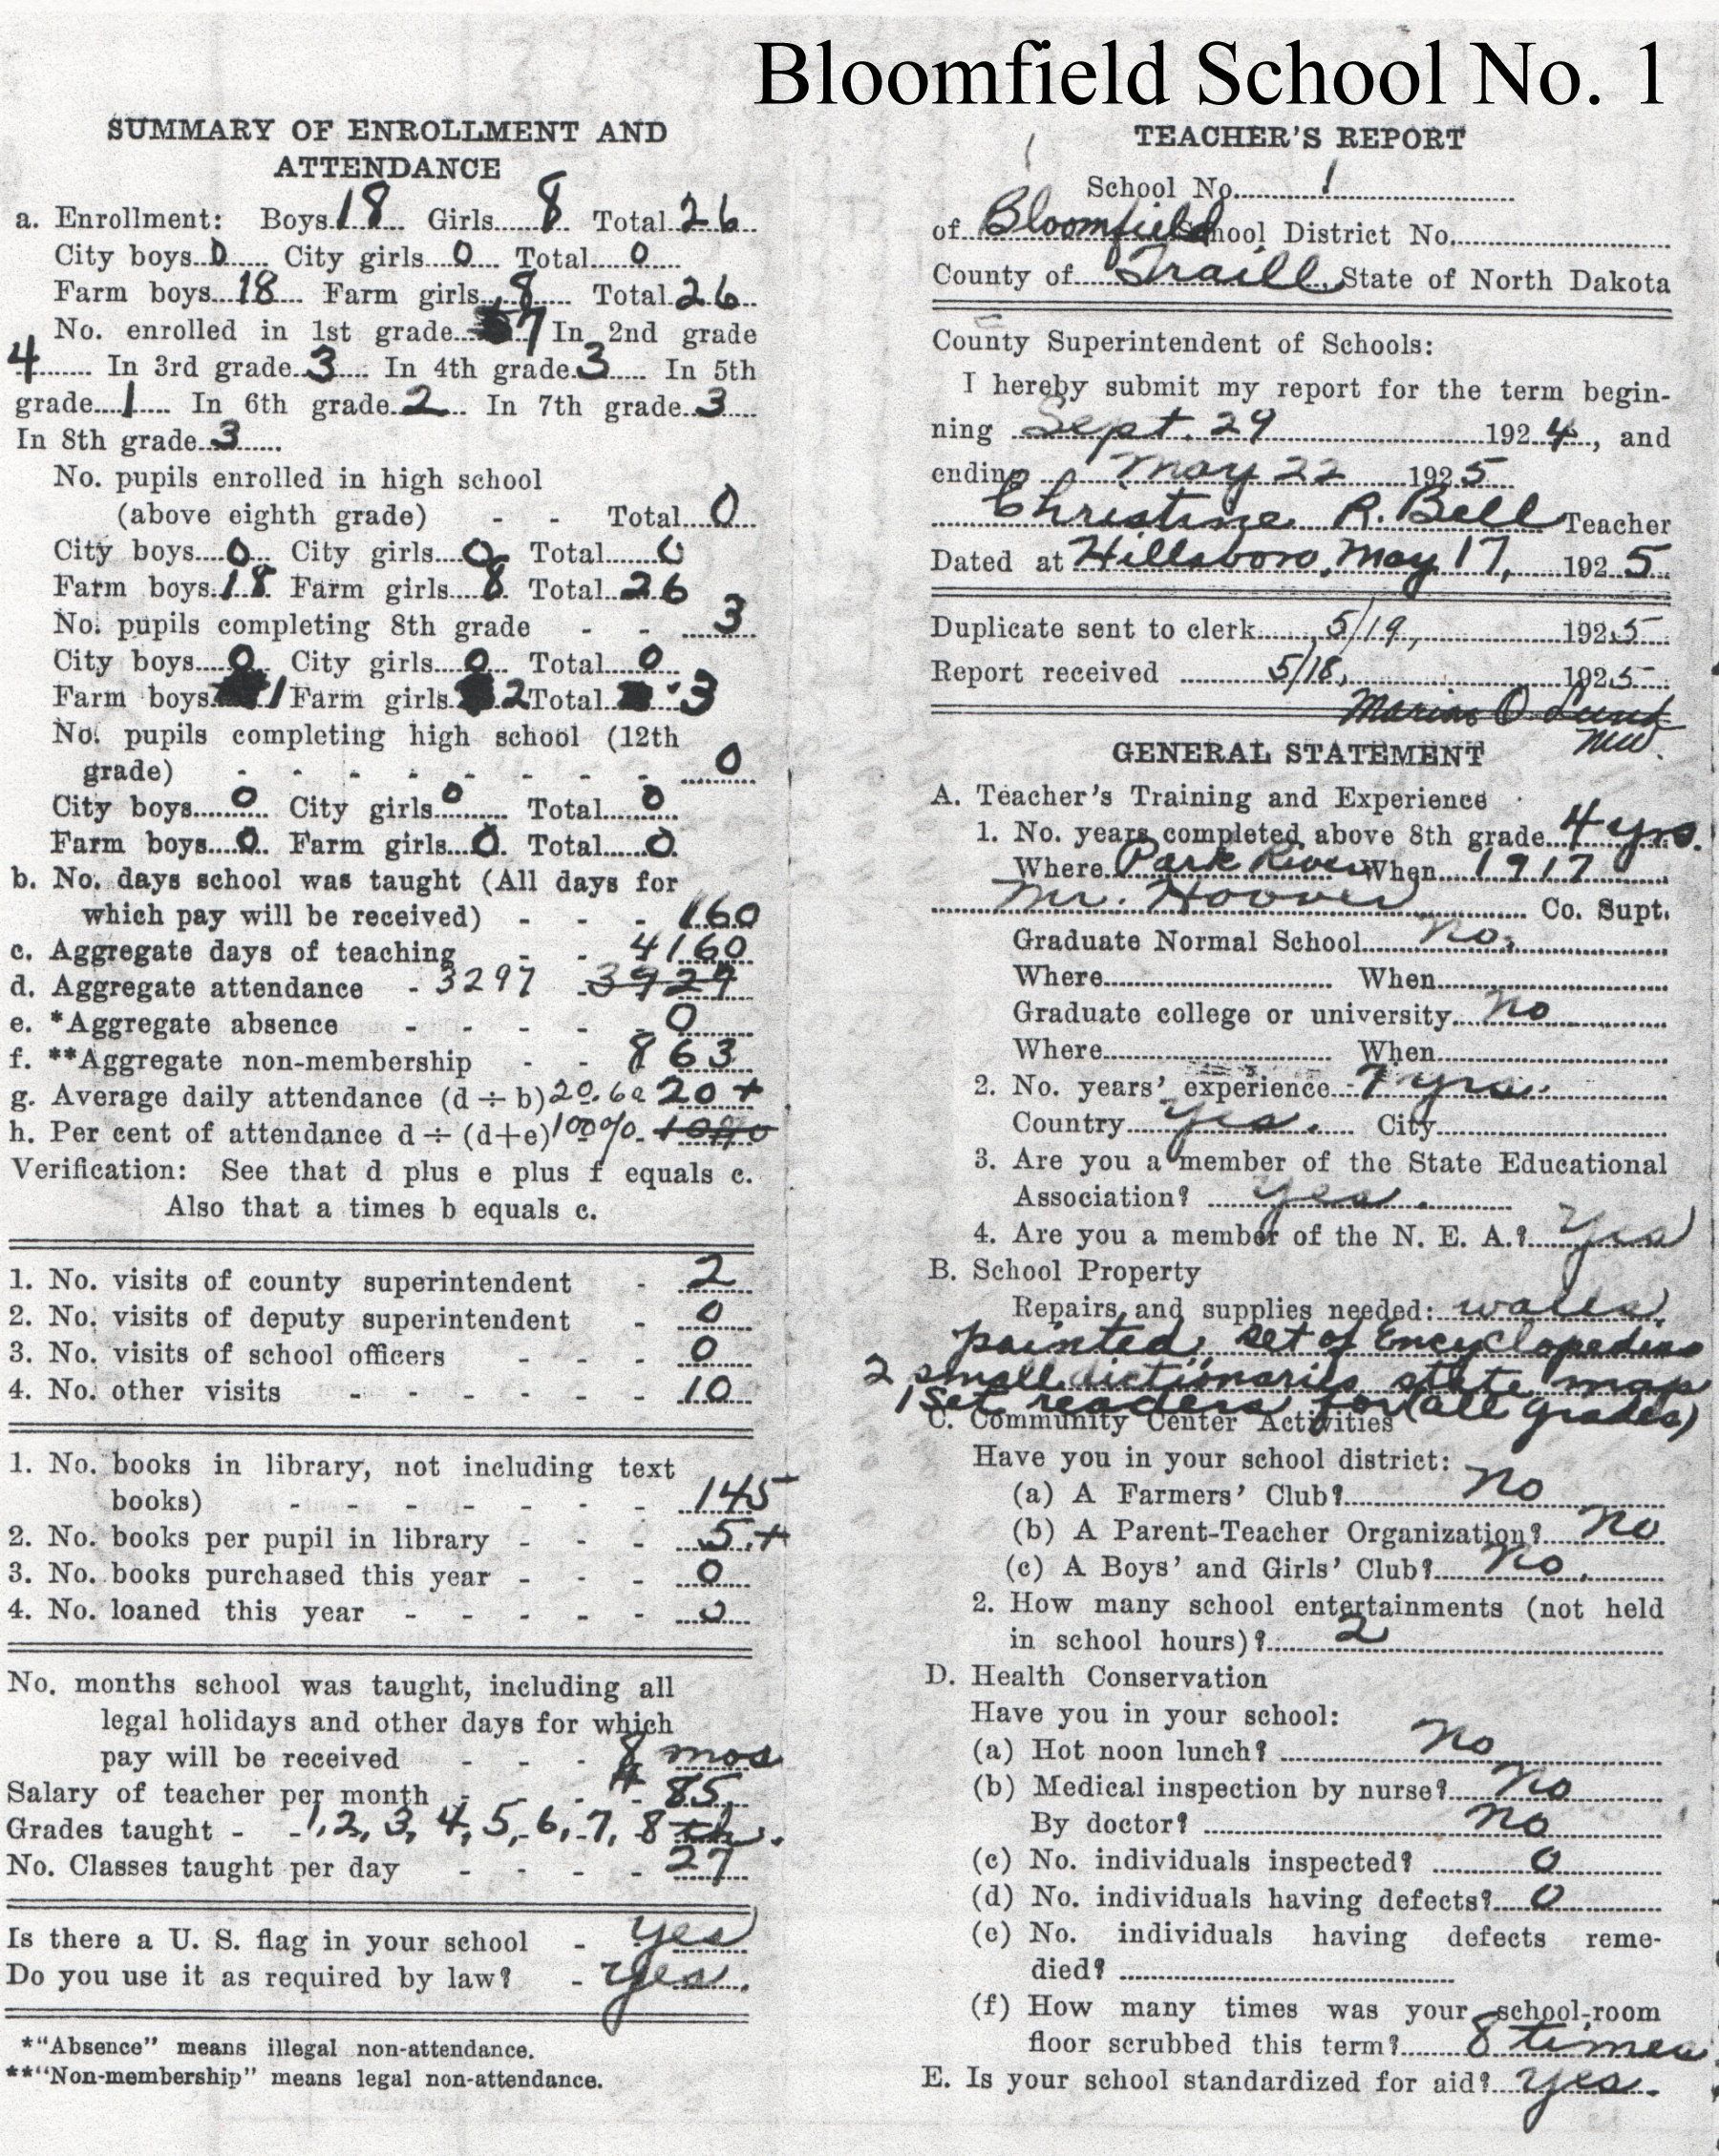 Bloomfield School No. 1
SUMMARY OF ENROLLMENT AND
ATTENDANCE
a. Enrollment: Boys 18 Girls 8 Total 26
City boys 0 City girls 0 Total 0
Farm boys 18 Farm girls 8 Total 26
No. enrolled in 1st grade 7 In 2nd grade
4 In 3rd grade 3 In 4th grade 3 In 5th
grade 1 In 6th grade 2 In 7th grade 3
In 8th grade 3
No. pupils enrolled in high school
(above eighth grade) - - Total 0
City boys 0 City girls 0 Total 0
Farm boys 18 Farm girls 8 Total 26
No. pupils completing 8th grade - - 3
City boys 0 City girls 0 Total 0
Farm boys 1 Farm girls 2 Total 3
No. pupils completing high school (12th
grade) - - - - - - - - 0
City boys 0 City girls 0 Total 0
Farm boys 0 Farm girls 0 Total 0
b. No. days school was taught (All days for
which pay will be received) - - - 160
c. Aggregate days of teaching - - 4160
d. Aggregate attendance - 3297 - 3929
e. *Aggregate absence - - - - - 0
f. **Aggregate non-membership - - 863
g. Average daily attendance (d ÷ b) 20.60 20+
h. Per cent of attendance d ÷ (d+e) 100%
Verification: See that d plus e plus f equals c.
Also that a times b equals c.
1. No. visits of county superintendent - 2
2. No. visits of deputy superintendent - 0
3. No. visits of school officers - - - 0
4. No. other visits - - - - - - 10
1. No. books in library, not including text
books) - - - - - - - 145
2. No. books per pupil in library - - - 5.+
3. No. books purchased this year - - - 0
4. No. loaned this year - - - - - 0
No. months school was taught, including all
legal holidays and other days for which
pay will be received - - - 8 mos
Salary of teacher per month - - - - $ 85
Grades taught - - 1, 2, 3, 4, 5, 6, 7, 8 th.
No. Classes taught per day - - - - 27
Is there a U. S. flag in your school - yes
Do you use it as required by law? - yes.
*"Absence" means illegal non-attendance.
**"Non-membership" means legal non-attendance.
TEACHER'S REPORT
School No. 1
of Bloomfield School District No.
County of Traill, State of North Dakota
County Superintendent of Schools:
I hereby submit my report for the term begin-
ning Sept. 29 1924, and
ending May 22 1925
Christine R. Bell Teacher
Dated at Hillsboro, May 17, 1925.
Duplicate sent to clerk 5/19, 1925
Report received 5/18, 1925
GENERAL STATEMENT
A. Teacher's Training and Experience
1. No. years completed above 8th grade 4 yrs.
Where Park River When 1917
Mr. Hoover Co. Supt.
Graduate Normal School no.
Where When
Graduate college or university no
Where When
2. No. years' experience 7 yrs.
Country yes. City
3. Are you a member of the State Educational
Association? yes.
4. Are you a member of the N. E. A.? yes
B. School Property
Repairs and supplies needed: walls
painted, set of Encyclopedias
2 small dictionaries state map
1 set readers for (all grades)
C. Community Center Activities
Have you in your school district:
(a) A Farmers' Club? no
(b) A Parent-Teacher Organization? no
(c) A Boys' and Girls' Club? no.
2. How many school entertainments (not held
in school hours)? 2
D. Health Conservation
Have you in your school:
(a) Hot noon lunch? no
(b) Medical inspection by nurse? no
By doctor? no
(c) No. individuals inspected? 0
(d) No. individuals having defects? 0
(e) No. individuals having defects reme-
died?
(f) How many times was your school-room
floor scrubbed this term? 8 times
E. Is your school standardized for aid? yes.